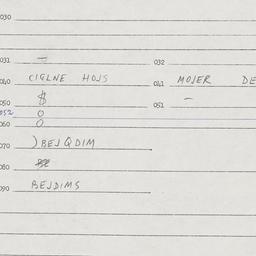 030
031 — 032
040 CIGLNE HOJS 041 MOJER DE
050 $ 051 —
052 0
060 0
070 )BEJQDIM
080
090 BEJDIMS